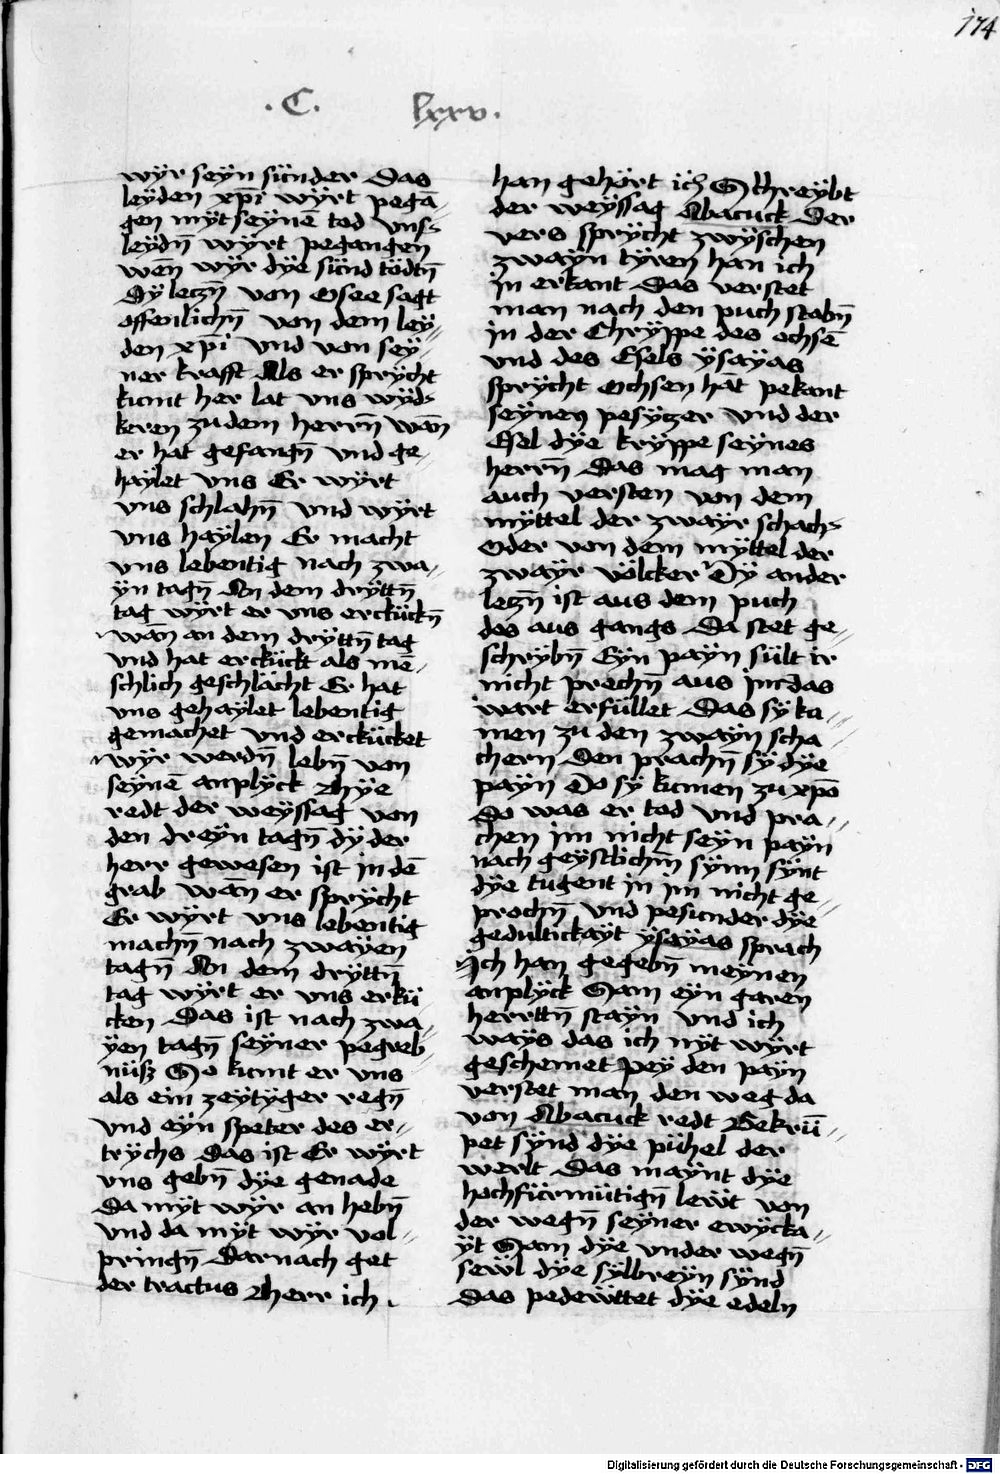 174
.C. lxxv.
wÿr seÿn sünder Das
leÿden xp̄i wÿrt pegā-
gen mÿt seÿnē tod vns
leÿdn̄ wÿrt pegangen
wen̄ wÿr dÿe sünd tödtn̄
Dÿ leczn̄ von Osee sagt
offenlichn̄ von dem leÿ-
den xp̄i vnd von seÿ-
ner krafft Als er sprÿcht
kumt her lat vns wÿd
keren zu dem herrn̄ wan̄
er hat gefangn̄ vnd ge-
haÿlet vns Er wÿrt
vns schlahn̄ vnd wÿrt
vns haÿlen Er macht
vns lebentig nach zwa-
ÿn tagn̄ An dem drÿttn̄
tag wÿrt er vns erckückn̄
wan̄ an dem drÿttn̄ tag
vnd hat erckückt als mē-
schlich geschlächt Er hat
vns gehaÿlet lebentig
gemachet vnd erckücket
wÿr werdn̄ lebn̄ von
seÿnē anplÿck Hÿe
redt der weÿssag von
den dreÿn tagn̄ dÿ der
herr gewesen ist in dē
grab wan̄ er sprÿcht
Er wÿrt vns lebentig
machn̄ nach zwaÿen
tagn̄ An dem drÿttn̄
tag wÿrt er vns erkü
cken Das ist nach zwa-
ÿen tagn̄ seÿner pegreb-
nüß So kumt er vns
als ein zeÿtÿger regn̄
vnd eÿn speter des er-
trÿchs Das ist Er wÿrt
vns gebn̄ dÿe genade
Da mÿt wÿr an hebn̄
vnd da mÿt wÿr vol-
pringn̄ Darnach get
der tractus Herr ich
han gehört ich Schreÿbt
der weÿssag Abacuck Der
vers sprÿcht zwÿschen
zwaÿn tÿren han ich
in erkant Das verstet
man nach den puch stabn̄
in der Chrÿppe des ochsē
vnd des Esels ÿsaÿas
sprÿcht Ochsen hat pekant
seÿnen pesÿtzer vnd der
Esel dÿe krÿppe seÿnes
herrn̄ Das mag man
auch versten von dem
mÿttel der zwaÿr schach
Oder von dem mÿttel der
zwaÿr völcker Dÿ ander
leczn̄ ist aus dem puch
des aus gangs Da stet ge-
schrÿbn̄ Eÿn paÿn sült ir
nicht prechn̄ aus im das
wart erfüllet Das sÿ ka-
men zu den zwaÿn scha
chern Den prachn̄ sÿ dÿe
paÿn Do sÿ kumen zu xp̄o
Do was er tod vnd pra-
chen im nicht seÿn paÿn
nach geÿstlichn̄ sÿnn sÿnt
dÿe tugent in im nicht ge-
prochn̄ vnd pesunder dÿe
gedultickaÿt ÿsaÿas sprach
Ich han gegebn̄ meÿnen
anplÿck Sam eÿn garen
herttn̄ staÿn vnd ich
waÿs das ich nÿt wÿrt
geschemet Peÿ den paÿn
verstet man den weg da
von Abacuck redt Gekrü-
pet sÿnd dÿe pühel der
werlt Das maÿnt dÿe
hochfürmütign̄ lewt von
der wegn̄ seÿner ewÿcka-
ÿt Sam dÿe vnder wegn̄
sewl dÿe sÿlbreÿn sÿnd
Das pedewttet dÿe edeln
Digitalisierung gefördert durch die Deutsche Forschungsgemeinschaft - DFG